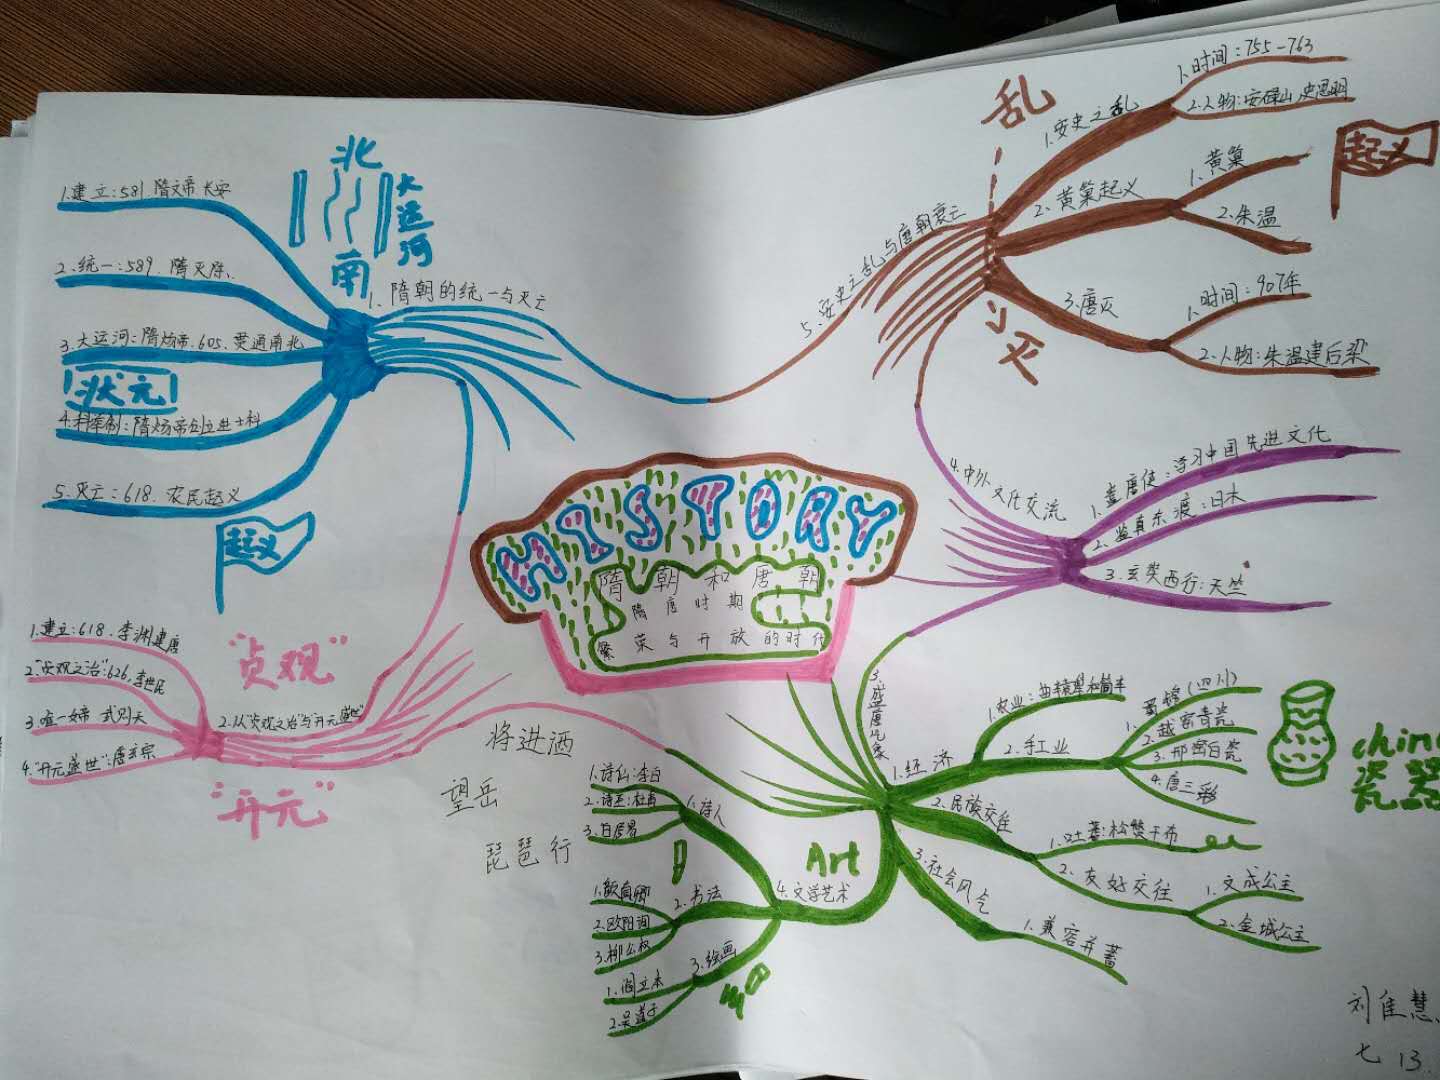 HISTORY
隋朝和唐朝
隋唐时期
繁荣与开放的时代
1、隋朝的统一与灭亡
北
大运河
南
1.建立:581 隋文帝 长安
2.统一:589. 隋灭陈.
3.大运河:隋炀帝.605、贯通南北
状元
4.科举制:隋炀帝创立进士科
5.灭亡:618. 农民起义
起义
"贞观"
2.从"贞观之治"与"开元盛世"
1.建立:618.李渊建唐
2."贞观之治":626,李世民
3.唯一女帝 武则天
4."开元盛世":唐玄宗
"开元"
3.盛唐气象
1.经济
1.农业:曲辕犁和筒车
2.手工业
1.蜀锦(四川)
2.越窑青瓷
3.邢窑白瓷
4.唐三彩
瓷器
2.民族交往
1.吐蕃:松赞干布
2.友好交往
1.文成公主
2.金城公主
3.社会风气
1.兼容并蓄
Art
4.文学艺术
1.诗人
1.诗仙:李白
2.诗圣:杜甫
3.白居易
将进酒
望岳
琵琶行
2.书法
1.颜真卿
2.欧阳询
3.柳公权
3.绘画
1.阎立本
2.吴道子
4.中外文化交流
1.遣唐使:学习中国先进文化
2.鉴真东渡:日本
3.玄奘西行:天竺
5.安史之乱与唐朝衰亡
乱
灭
1.安史之乱
1、时间:755-763
2.人物:安禄山,史思明
2.黄巢起义
1.黄巢
2.朱温
起义
3.唐灭
1.时间:907年
2.人物:朱温建后梁
七 13